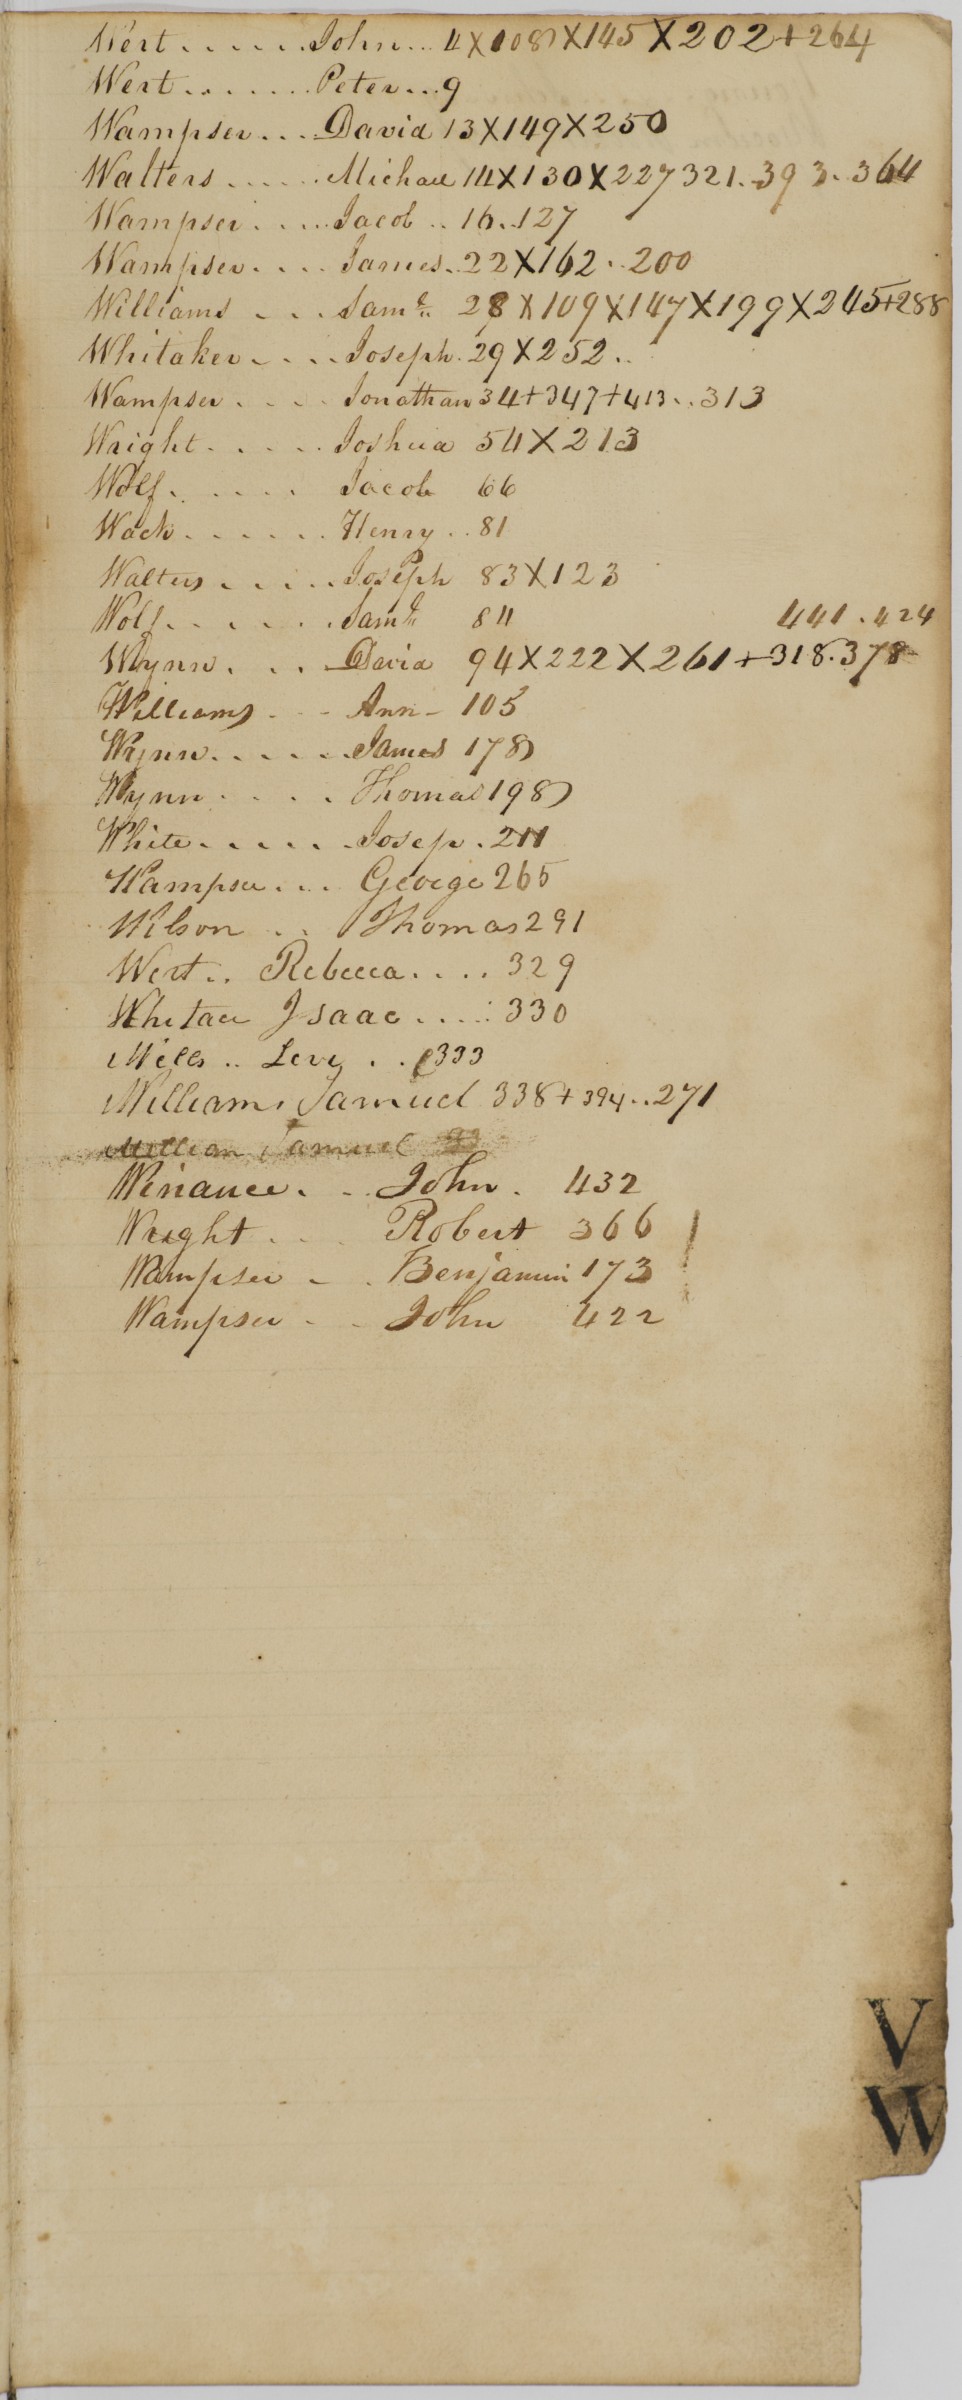 Wert ...... John... 4 X 108 X 145 X 202 + 264
Wert ....... Peter... 9
Wampser ... David 13 X 149 X 250
Walters ..... Michael 14 X 130 X 227 321 . 393 .. 364
Wampser ..... Jacob .. 16 .. 127
Wampser .... James .. 22 X 162 .. 200
Williams ... Saml. 28 X 109 X 147 X 199 X 245 + 288
Whitaker .... Joseph . 29 X 252 ..
Wampser .... Jonathan 34 + 347 + 413 .. 313
Wright ..... Joshua 54 X 213
Wolf ...... Jacob 66
Wack ...... Henry .. 81
Walters ..... Joseph 83 X 123
Wolf ....... Saml. 84
441 . 424
Wynn .... David 94 X 222 X 261 + 318 . 378
Williams .. Ann - 105
Wynn ...... James 178
Wynn ..... Thomas 198
White ...... Josep . 211
Wampser ... George 265
Wilson .. Thomas 291
Wert .. Rebecca .... 329
Isaac ..... 330
Wells .. Levy .. 333
Williams Samuel 338 + 394 .. 271
William Samuel
John . 432
Wright .... Robert 366
Wampser - . Benjamin 173
Wampser - - John 422
V
W